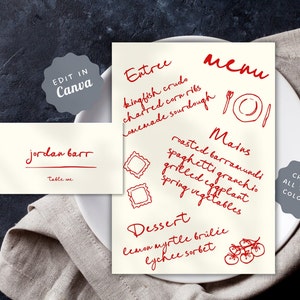 EDIT IN
Canva
menu
Entree
kingfish crudo
charred corn ribs
homemade sourdough
Mains
roasted barramundi
spaghetti granchio
grilled eggplant
spring vegetables
Dessert
lemon myrtle brûlée
lychee sorbet
jordan barr
table one
ALL